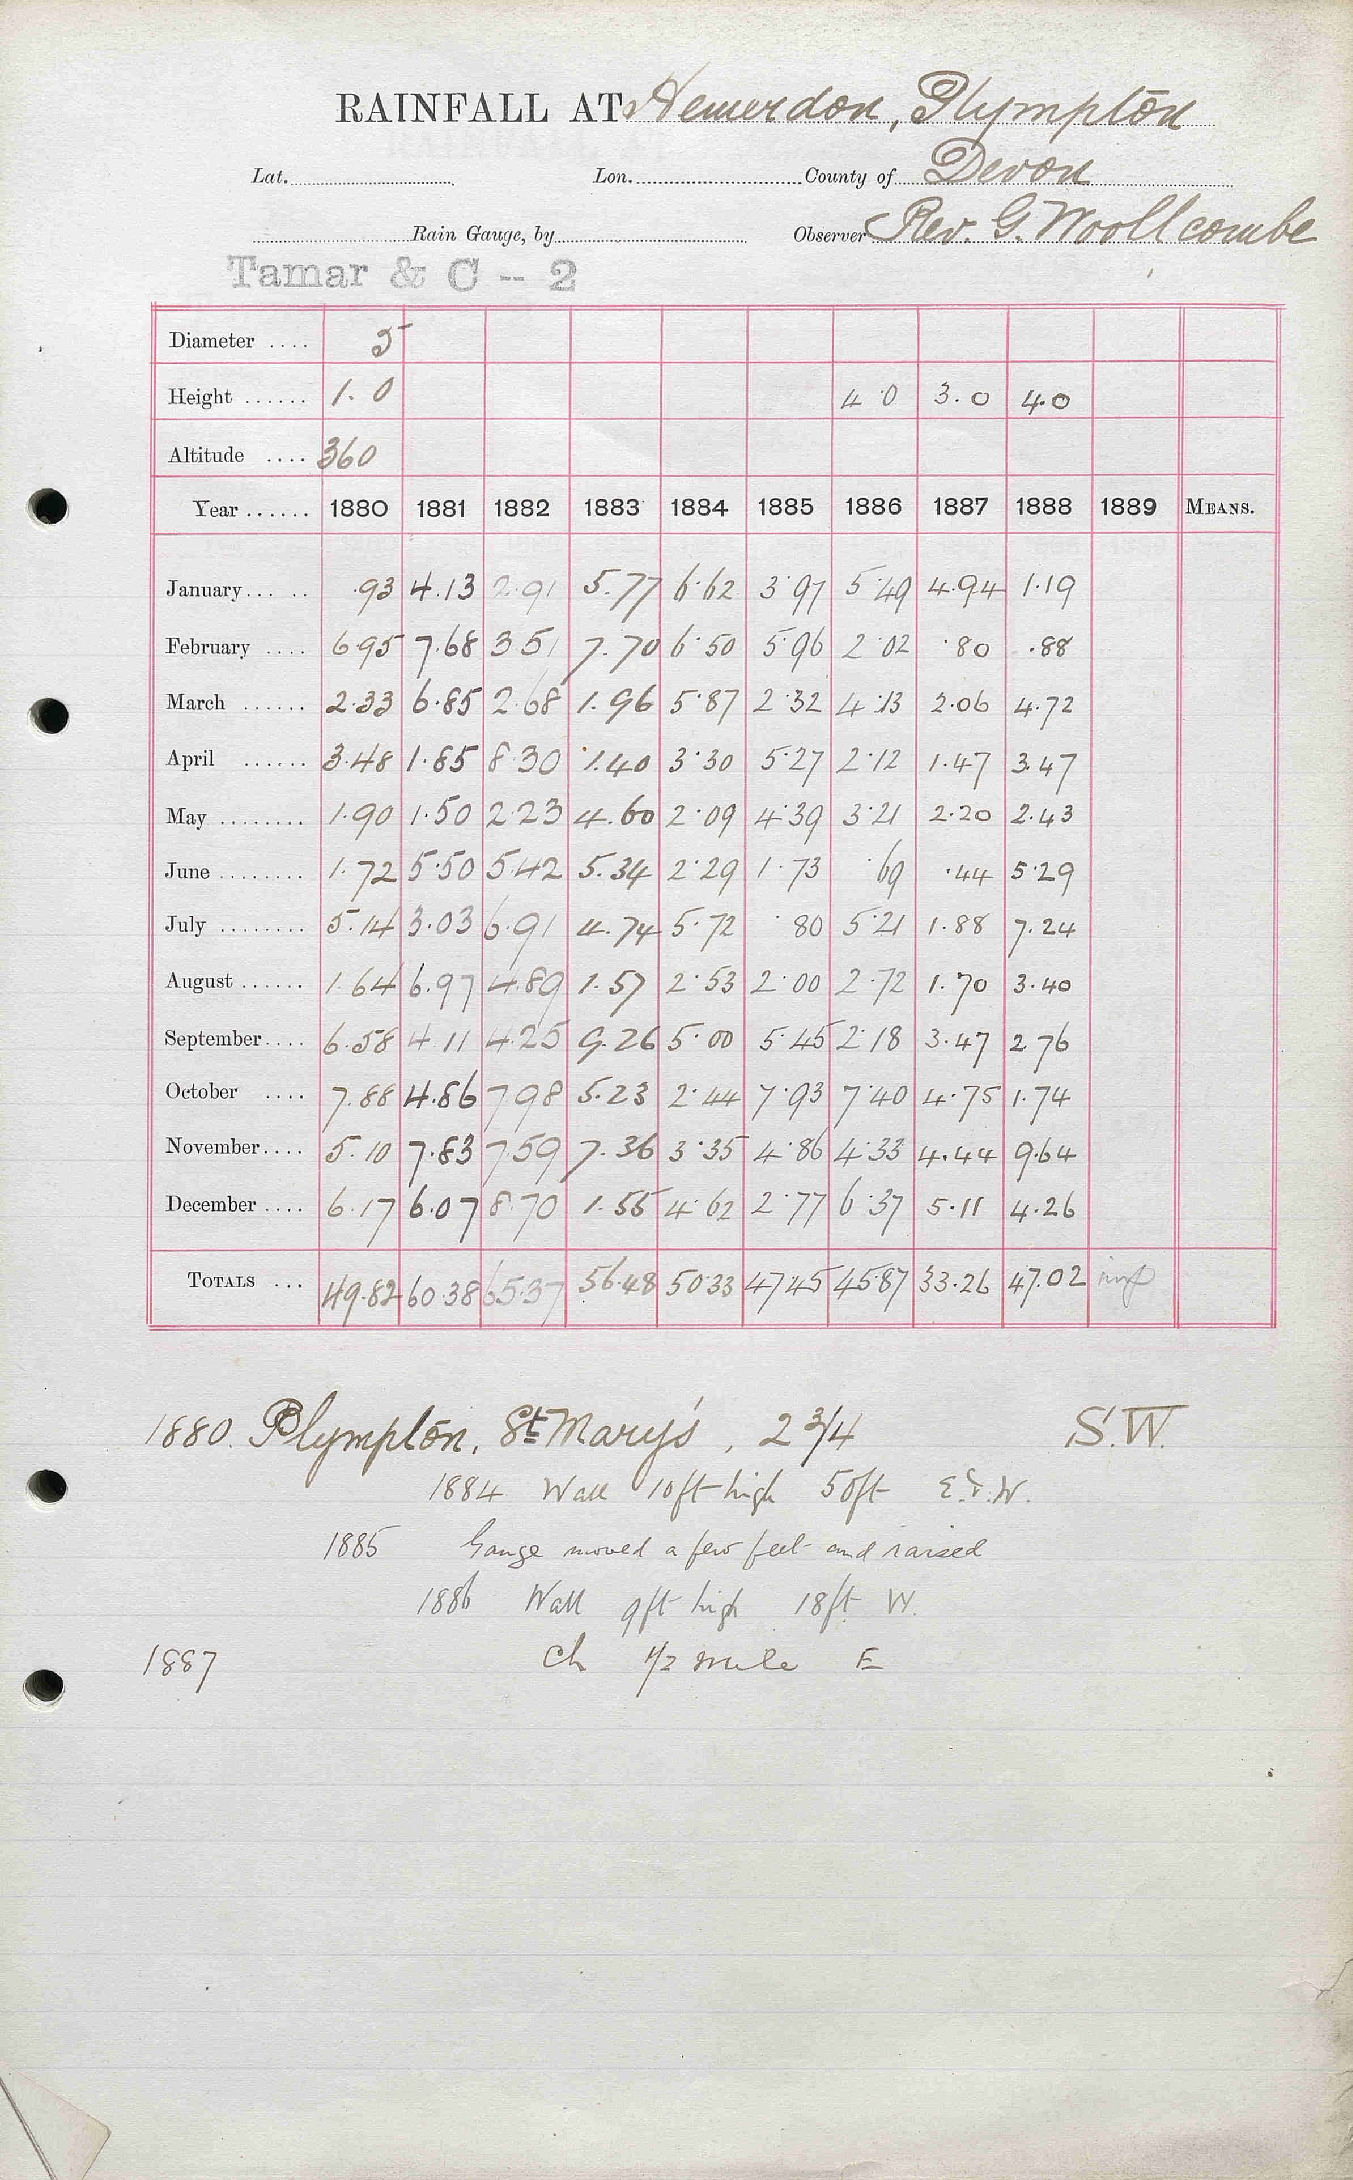 RAINFALL AT Hemerdon, Plympton
Lat. Lon. County of Devon
Rain Gauge, by Observer Rev. G. Woollcombe
Tamar & C -- 2
Diameter .... 5
Height ...... 1.0 4.0 3.0 4.0
Altitude .... 360
Year ...... 1880 1881 1882 1883 1884 1885 1886 1887 1888 1889 MEANS.
January... .. .93 4.13 2.91 5.77 6.62 3.97 5.49 4.94 1.19
February .... 6.95 7.68 3.51 7.70 6.50 5.96 2.02 .80 .88
March ...... 2.33 6.85 2.68 1.96 5.87 2.32 4.13 2.06 4.72
April ...... 3.48 1.85 8.30 1.40 3.30 5.27 2.12 1.47 3.47
May ........ 1.90 1.50 2.23 4.60 2.09 4.39 3.21 2.20 2.43
June ........ 1.72 5.50 5.42 5.34 2.29 1.73 .69 .44 5.29
July ........ 5.14 3.03 6.91 4.74 5.72 .80 5.21 1.88 7.24
August ...... 1.64 6.97 4.89 1.57 2.53 2.00 2.72 1.70 3.40
September.... 6.58 4.11 4.25 9.26 5.00 5.45 2.18 3.47 2.76
October .... 7.88 4.86 7.98 5.23 2.44 7.93 7.40 4.75 1.74
November.... 5.10 7.83 7.59 7.36 3.35 4.86 4.33 4.44 9.64
December .... 6.17 6.07 8.70 1.55 4.62 2.77 6.37 5.11 4.26
TOTALS ... 49.82 60.38 65.37 56.48 50.33 47.45 45.87 33.26 47.02
1880. Plympton, St Mary's, 2 3/4 S.W.
1884 Wall 10ft high 50ft E.&.W.
1885 Gauge moved a few feet and raised
1886 Wall 9ft high 18ft W.
1887 Ch 1/2 mile E